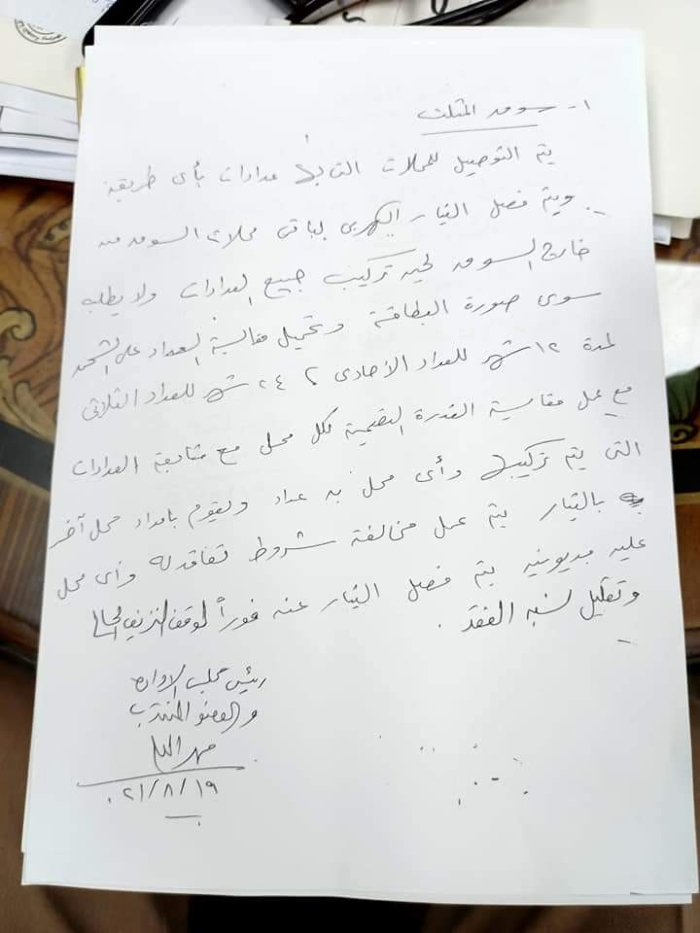 ١- سوق المثلث
يتم التوصيل للمحلات التى بها عدادات بأى طريقة
ويتم فصل التيار الكهربى لباقى محلات السوق من
خارج السوق لحين تركيب جميع العدادات ولا يطلب
سوى صورة البطاقة وتحميل مقايسة العداد على الشحن
لمدة ١٢ شهر للعداد الأحادى ، ٢٤ شهر للعداد الثلاثى
مع عمل مقايسة القدرة لكل محل مع متابعة العدادات
التى يتم تركيبها وأى محل به عداد ويقوم بإمداد محل آخر
بالتيار يتم عمل مخالفة شروط تعاقد له وأى محل
عليه مديونيه يتم فصل التيار عنه فوراً لوقف النزيف الحالى
وتقليل نسبة الفقد .
رئيس مجلس الادارة
والعضو المنتدب
٢١/٨/١٩